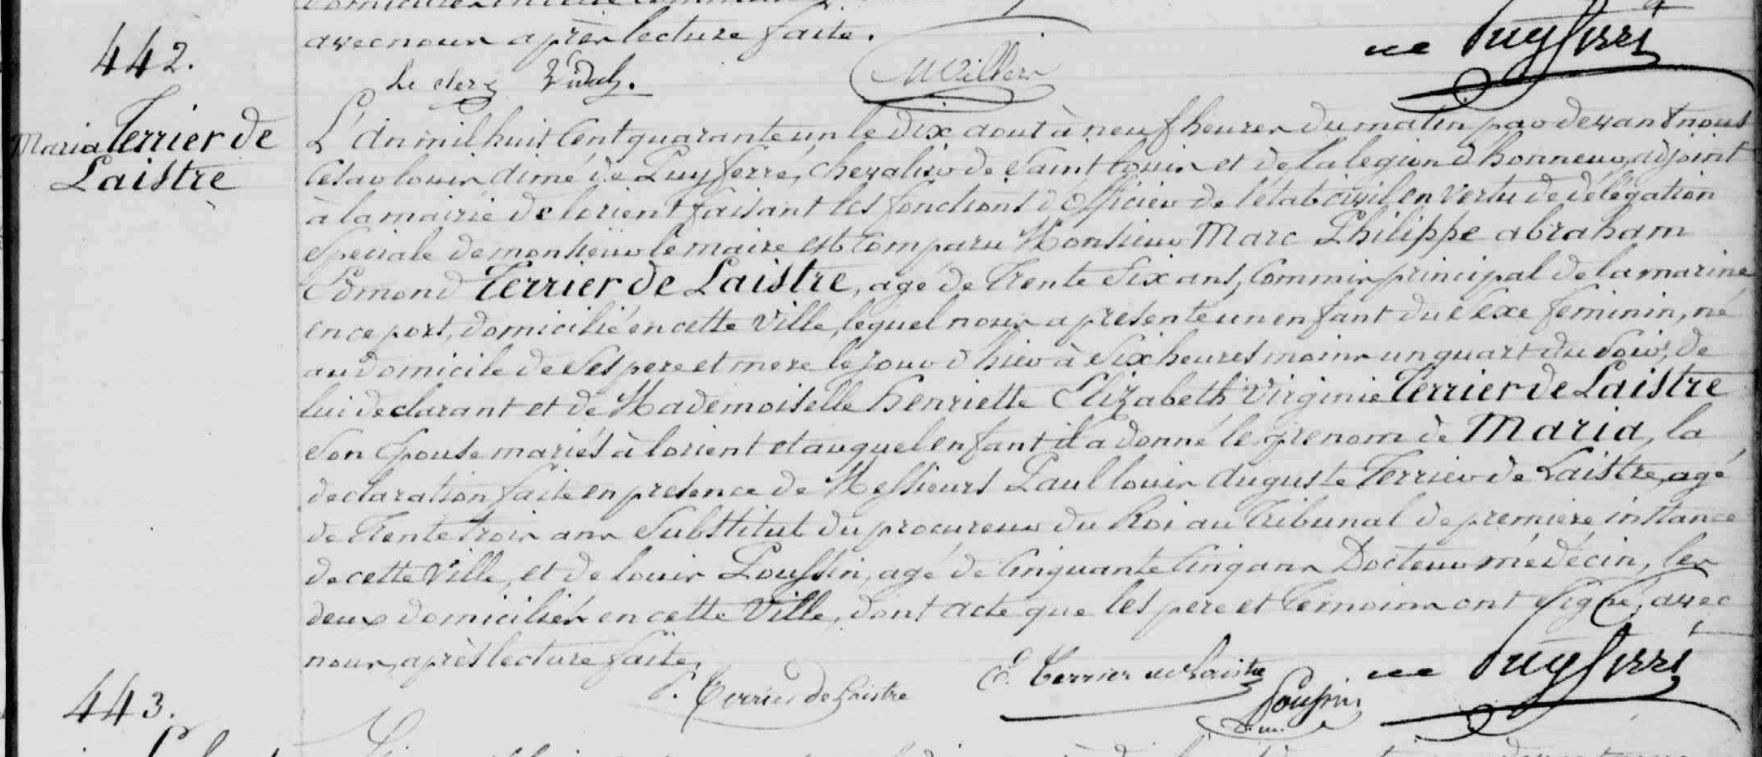 avec nous après lecture faite.
442.
Le clerc Vidal.
de Puyferré
Maria Terrier de
Laistre
L'An mil huit cent quarante un le dix aout à neuf heures du matin, par devant nous
César louis aimé de Puyferré, chevalier de Saint Louis et de la legion d'honneur, adjoint
à la mairie de lorient faisant les fonctions d'officier de l'état civil en vertu de délégation
speciale de monsieur le maire est comparu Monsieur Marc Philippe abraham
Edmond Terrier de Laistre, agé de trente six ans, commis principal de la marine
en ce port, domicilié en cette ville, lequel nous a présenté un enfant du sexe feminin, né
au domicile de ses pere et mere le jour d'hier à six heures moins un quart du soir, de
lui declarant et de Mademoiselle henriette Elizabeth Virginie Terrier de Laistre
son épouse mariés à lorient et auquel enfant il a donné le prenom de Maria, la
declaration faite en presence de Messieurs Paul louis Auguste Terrier de Laistre, agé
de trente trois ans Substitut du procureur du Roi au tribunal de premiere instance
de cette Ville, et de louis Poussin, agé de cinquante cinq ans Docteur médecin, les
deux domiciliés en cette Ville, dont acte que les pere et temoins ont signé, avec
nous, après lecture faite.
P. Terrier de Laistre
E. Terrier de Laistre
Poussin
D. m.
de Puyferré
443.